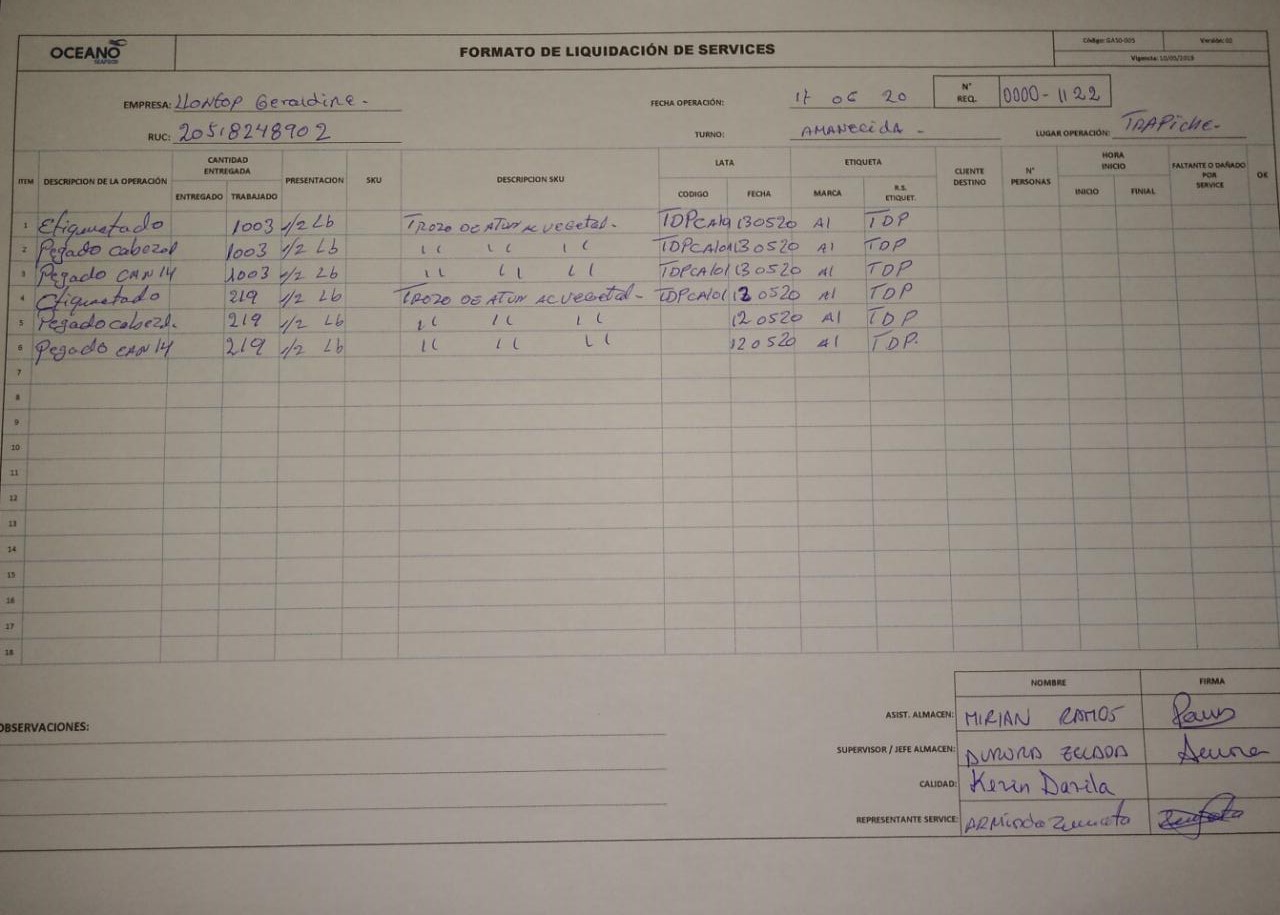 OCEANO SEAFOOD
FORMATO DE LIQUIDACIÓN DE SERVICES
Código: GASO-005 Versión: 02
Vigencia: 10/05/2019
EMPRESA: Llontop Geraldine - FECHA OPERACIÓN: 17 06 20 N° REQ. 0000-1122
RUC: 20518248902 TURNO: AMANECIDA - LUGAR OPERACIÓN: TRAPiche-
ITEM DESCRIPCION DE LA OPERACIÓN CANTIDAD ENTREGADA PRESENTACION SKU DESCRIPCION SKU LATA ETIQUETA CLIENTE DESTINO N° PERSONAS HORA INICIO FALTANTE O DAÑADO POR SERVICE OK
ENTREGADO TRABAJADO CODIGO FECHA MARCA R.S. ETIQUET. INICIO FINIAL
1 Etiquetado 1003 1/2 Lb TROZO DE ATUN AC Vegetal- 130520 A1 TDP
2 Pegado cabezal 1003 1/2 Lb " " " 130520 A1 TDP
3 Pegado CAN 14 1003 1/2 Lb " " " TDPCA101 130520 A1 TDP
4 Etiquetado 219 1/2 Lb TROZO DE ATUN AC Vegetal- TDPCA101 120520 A1 TDP
5 Pegado cabezl. 219 1/2 Lb " " " 120520 A1 TDP
6 Pegado CAN 14 219 1/2 Lb " " " 120520 A1 TDP.
7
8
9
10
11
12
13
14
15
16
17
18
NOMBRE FIRMA
OBSERVACIONES:
ASIST. ALMACEN: MIRIAN RAMOS
SUPERVISOR / JEFE ALMACEN: AURORA ZELADA
CALIDAD: Kevin Davila
REPRESENTANTE SERVICE: ARMindo